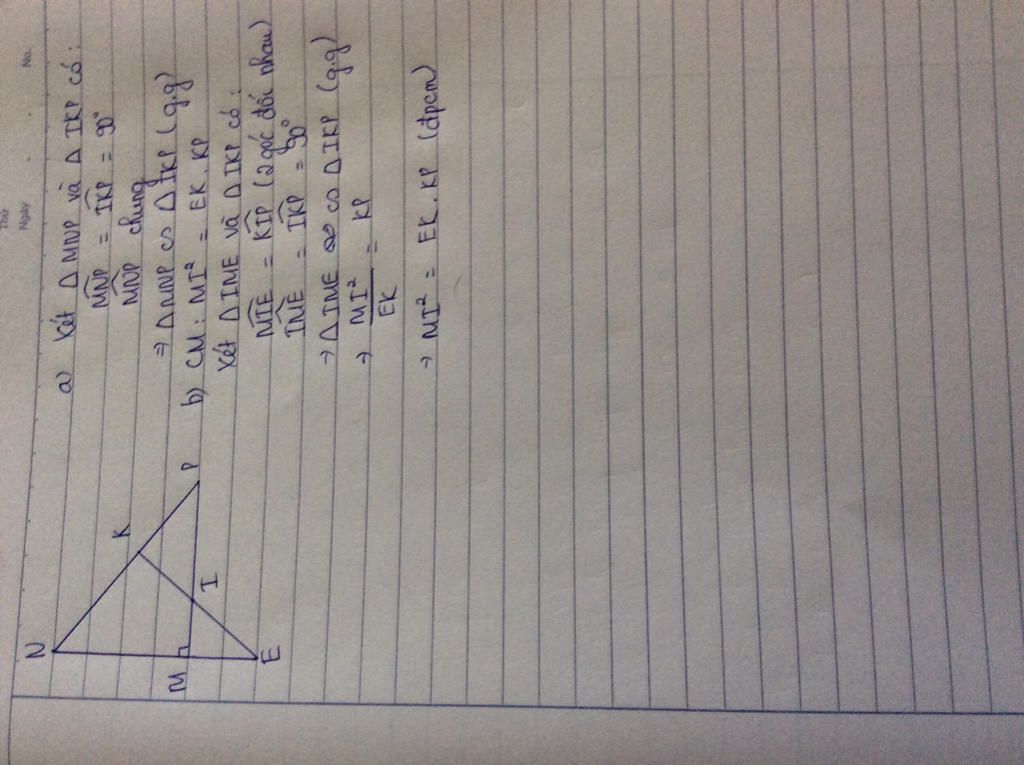 Thứ
Ngày
No.
a) Xét Δ MNP và Δ IKP có:
MNP = IKP = 90°
MNP chung
⇒ ΔMNP ∽ ΔIKP (g.g)
b) CM: MI² = EK.KP
Xét ΔIME và ΔIKP có:
MIE = KIP (2 góc đối nhau)
IME = IKP = 90°
→ ΔIME ∽ ΔIKP (g.g)
→ MI²/EK = KP
→ MI² = EK.KP (đpcm)
N
K
P
M
I
E